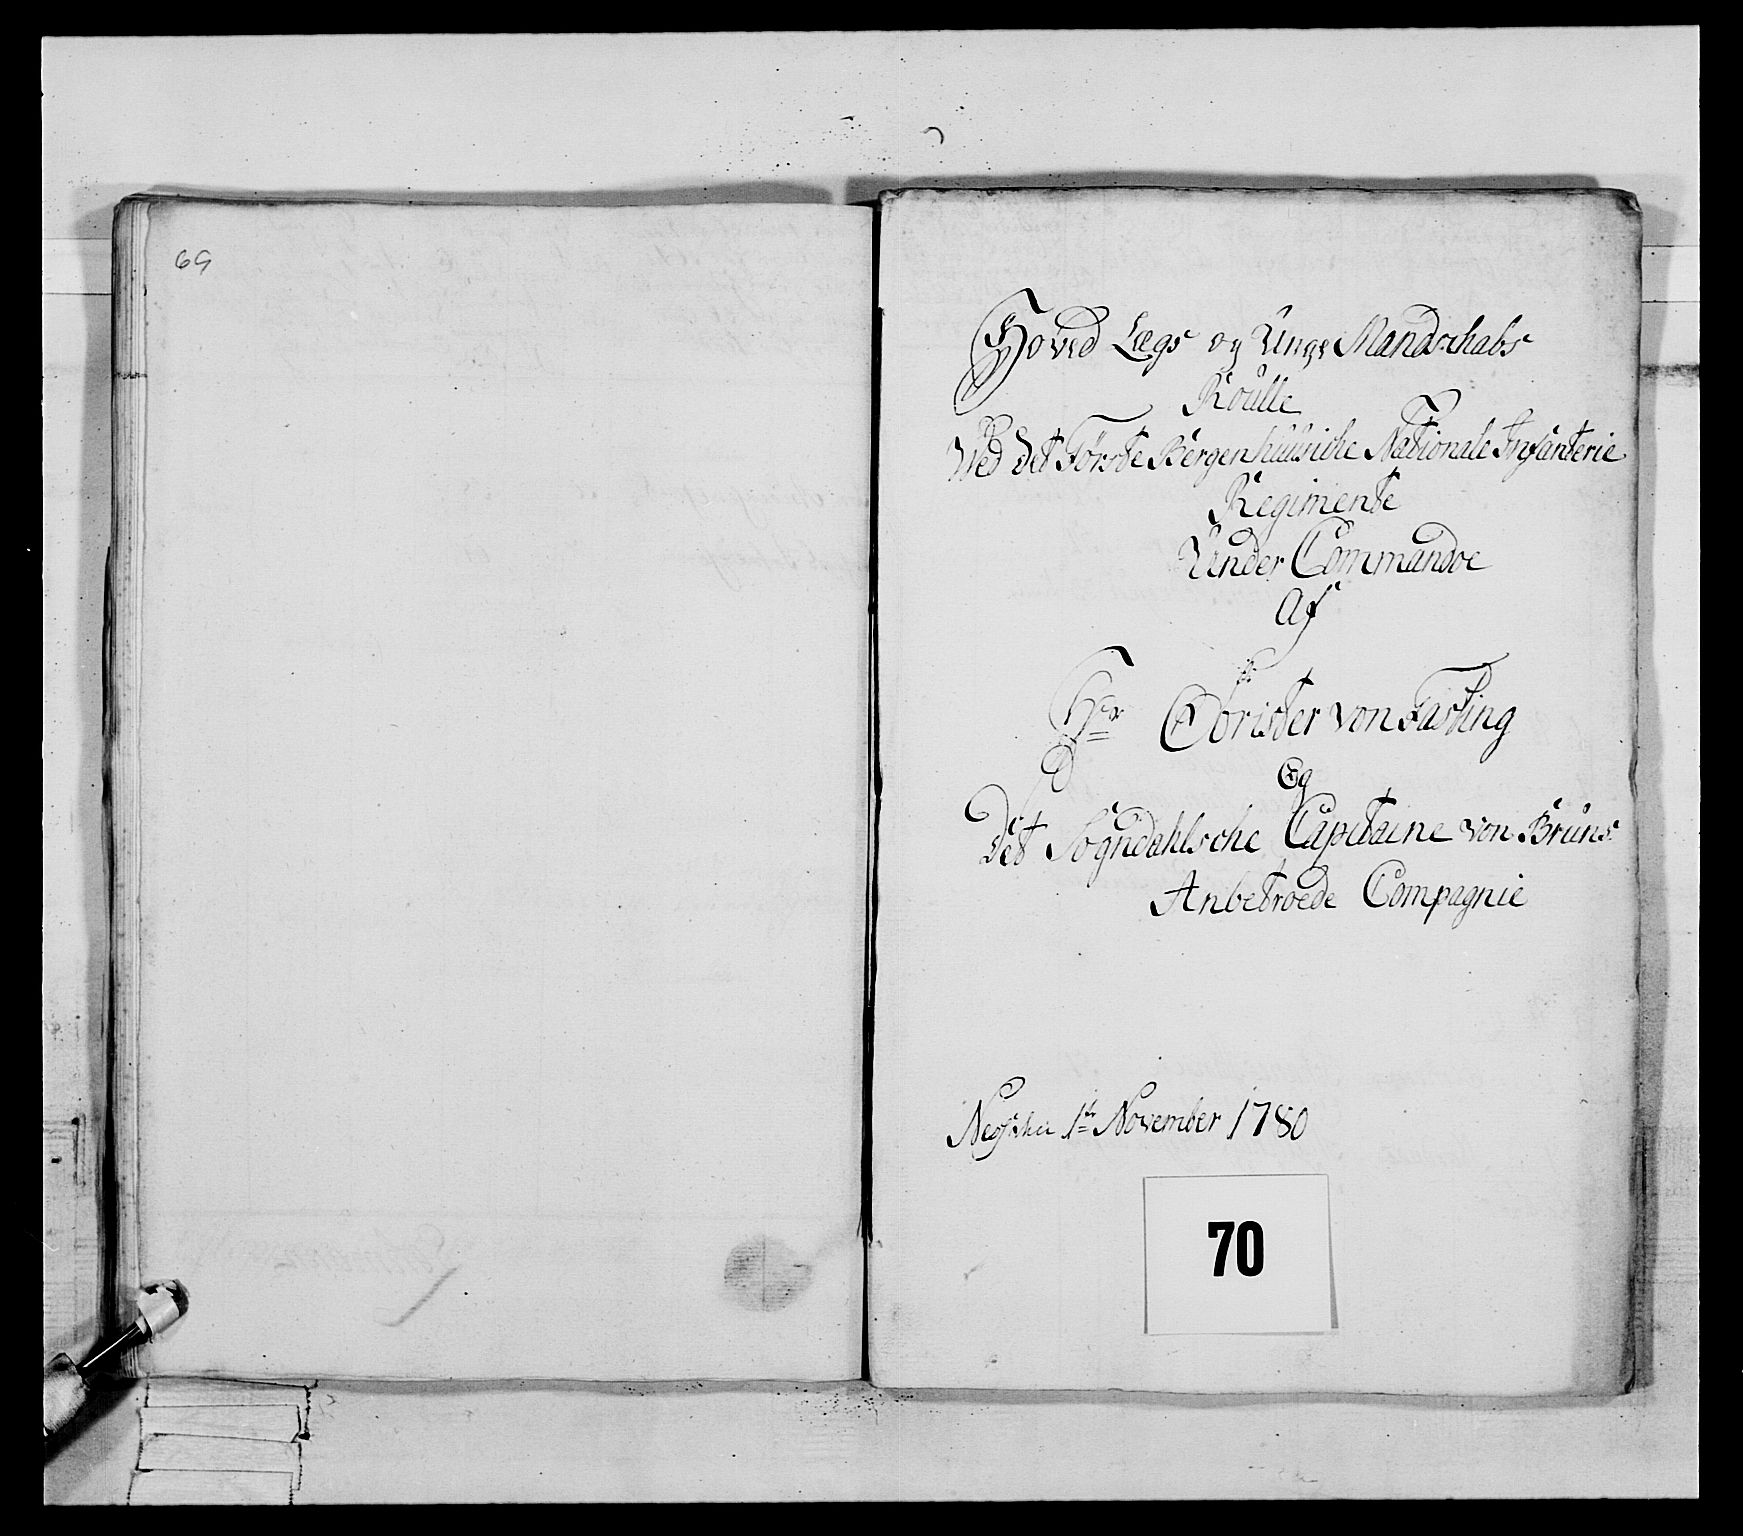 69
Hoved Lægs og Unge Mandschabs
Roulle
Ved det Første Bergenhuusiche Nationale Infanterie
Regimente
Under Commandoe
Af
Hr Obrister von Fasting
Og
Det Sogndahlsche Capitaine von Bruns
Anbetroede Compagnie
1te November 1780
70